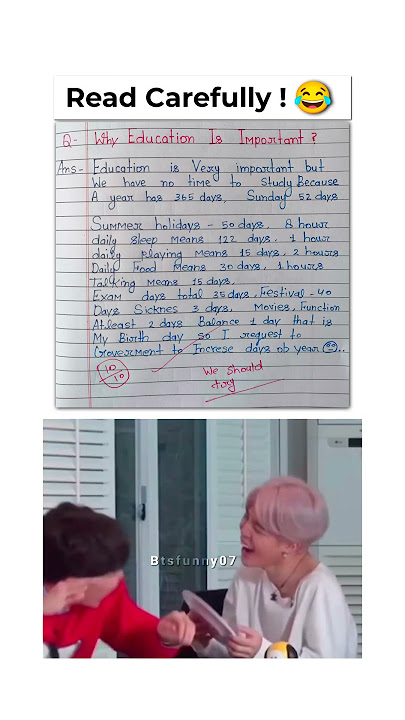 Read Carefully ! 😂
Q- Why Education Is Important ?
Ans- Education is Very important but
We have no time to Study Because
A year has 365 days, Sunday 52 days
Summer holidays - 50 days, 8 hour
daily sleep means 122 days, 1 hour
daily playing means 15 days, 2 hours
Daily Food Means 30 days, 1 hours
Talking means 15 days,
Exam days total 35 days, Festival - 40
Days Sicknes 3 days, Movies, Function
Atleast 2 days Balance 1 day that is
My Birth day so I request to
Goverment to Increse days of year 😁..
10/10
We should
try
Btsfunny07